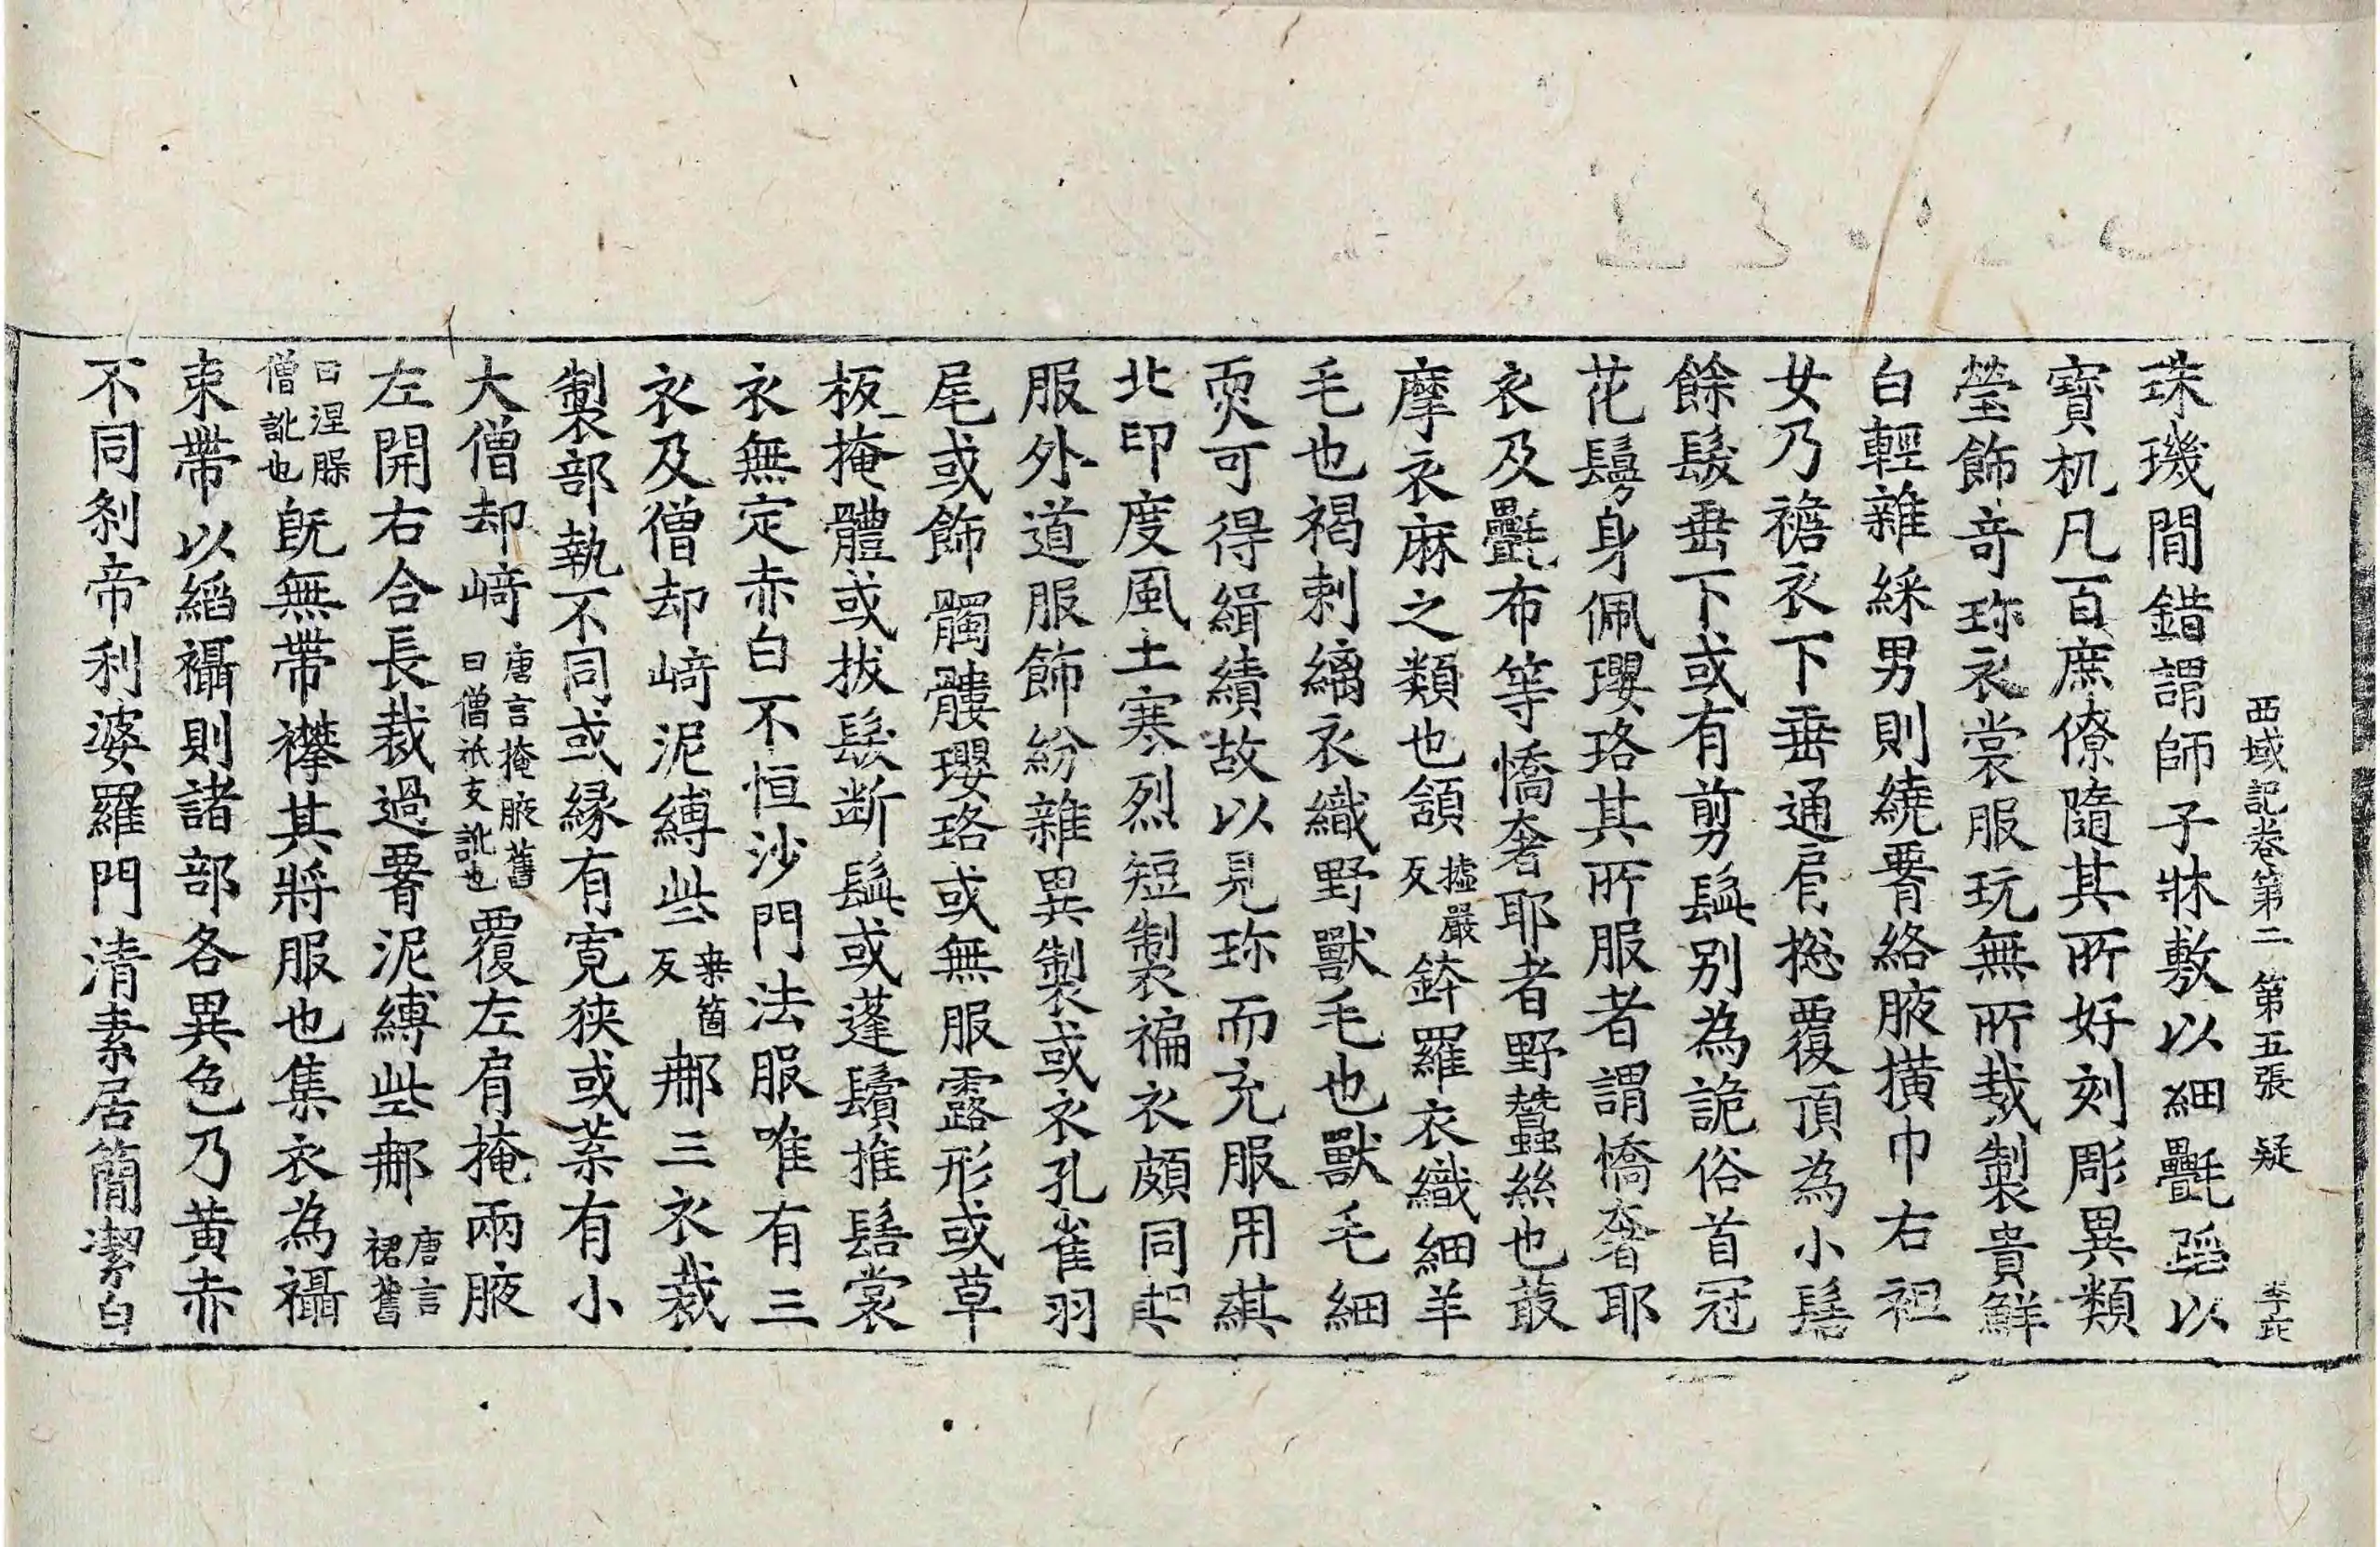 西域記卷第二 第五張 疑 李氏
珠璣間錯謂師子牀敷以細㲲蹈以
寶机凡百庶僚隨其所好刻彫異類
瑩飾奇珎衣裳服玩無所裁製貴鮮
白輕雜綵男則繞腰絡腋橫巾右袒
女乃襜衣下垂通肩揔覆頂為小髻
餘髮垂下或有剪髭別為詭俗首冠
花鬘身佩瓔珞其所服者謂憍奢耶
衣及㲲布等憍奢耶者野蠶絲也蕞
摩衣麻之類也頷墟嚴反鉢羅衣織細羊
毛也褐剌縭衣織野獸毛也獸毛細
耎可得緝績故以見珎而充服用其
北印度風土寒烈短製褊衣頗同胡
服外道服飾紛雜異製或衣孔雀羽
尾或飾髑髏瓔珞或無服露形或草
板掩體或拔髮断髭或蓬鬢推髻裳
衣無定赤白不恒沙門法服唯有三
衣及僧却崎泥縛些桒箇反𨙻三衣裁
製部執不同或緣有寬狹或葉有小
大僧却崎唐言掩腋舊曰僧祇支訛也覆左肩掩兩腋
左開右合長裁過腰泥縛些𨙻唐言裙舊
曰涅槃僧訛也旣無帶襻其將服也集衣為襵
束帶以絛襵則諸部各異色乃黃赤
不同剎帝利婆羅門清素居簡潔白